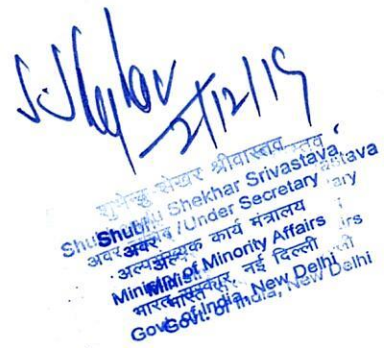 2/12/19
शेखर श्रीवास्तव
Shekhar Srivastava
अवर सचिव /Under Secretary
अल्पसंख्यक कार्य मंत्रालय
Ministry of Minority Affairs
भारत सरकार, नई दिल्ली
Govt. of India, New Delhi